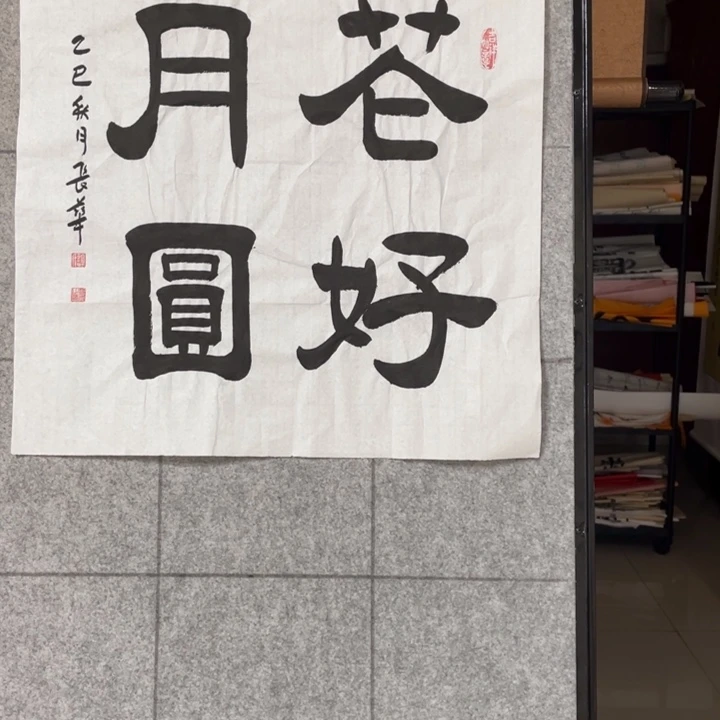 花好
月圓
乙巳秋月長華